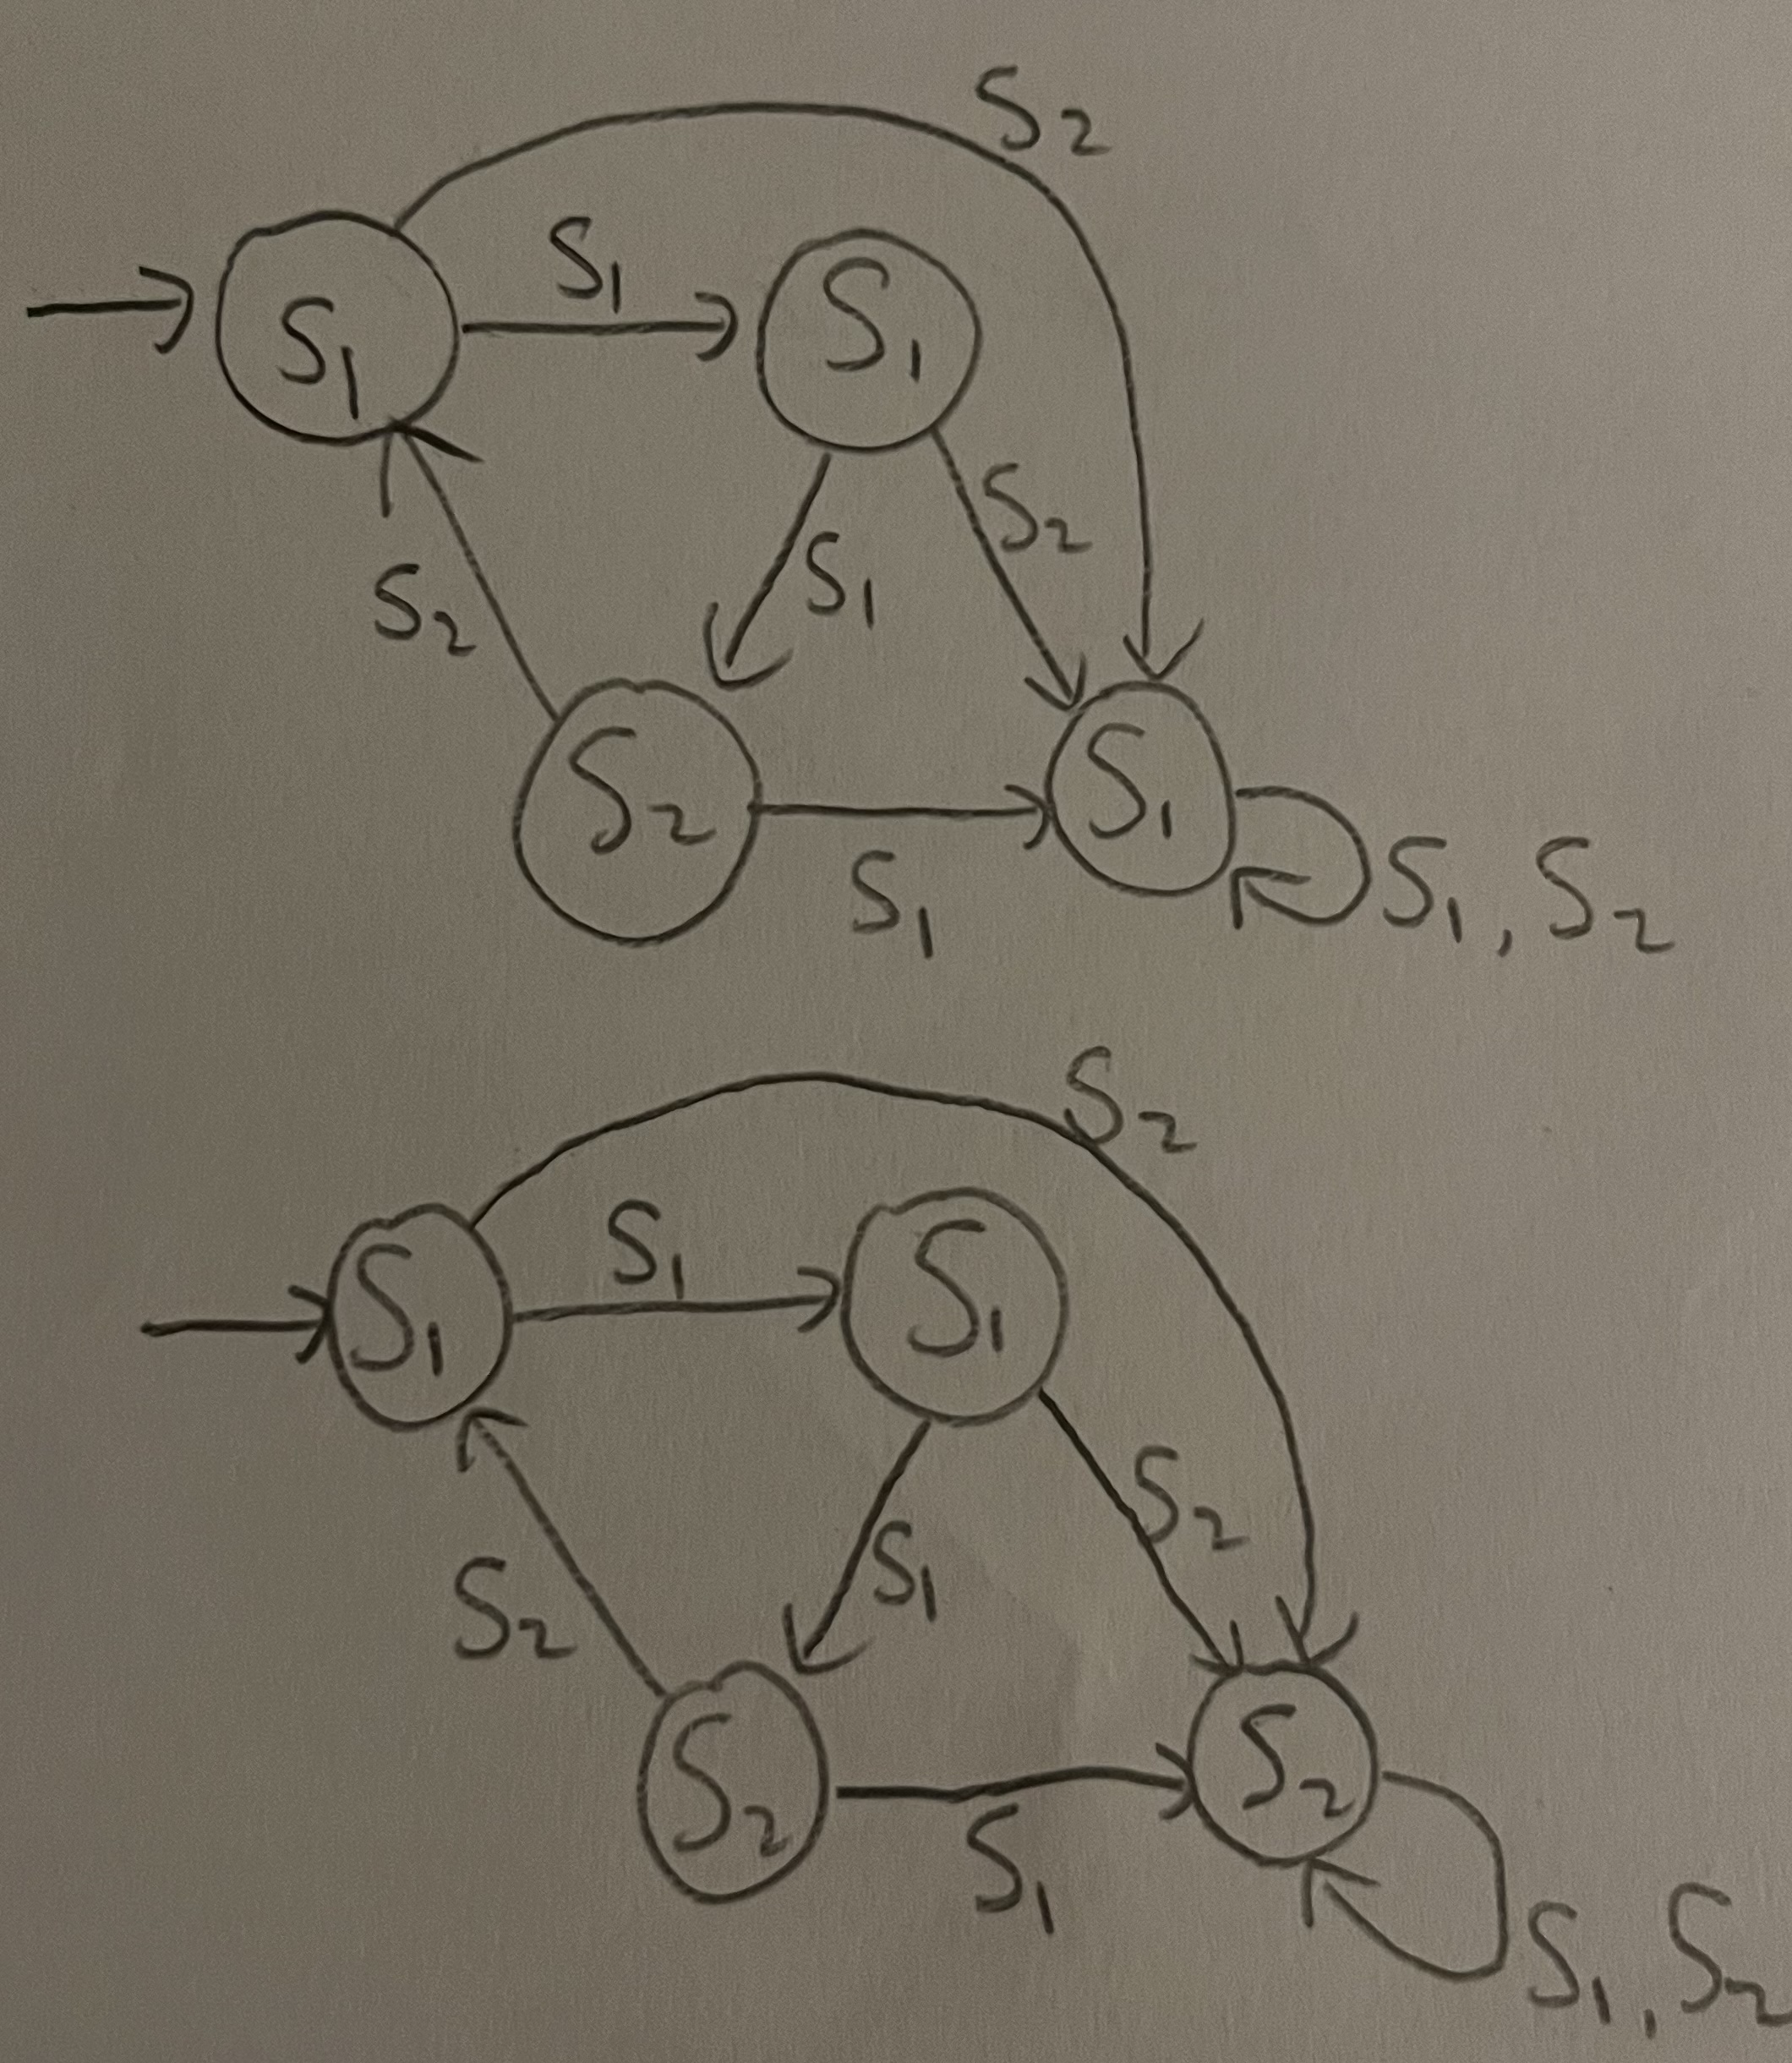 S2
S1
S1
S1
S2
S1
S2
S2
S1
S1
S1, S2
S2
S1
S1
S1
S2
S1
S2
S2
S2
S1
S1, S2